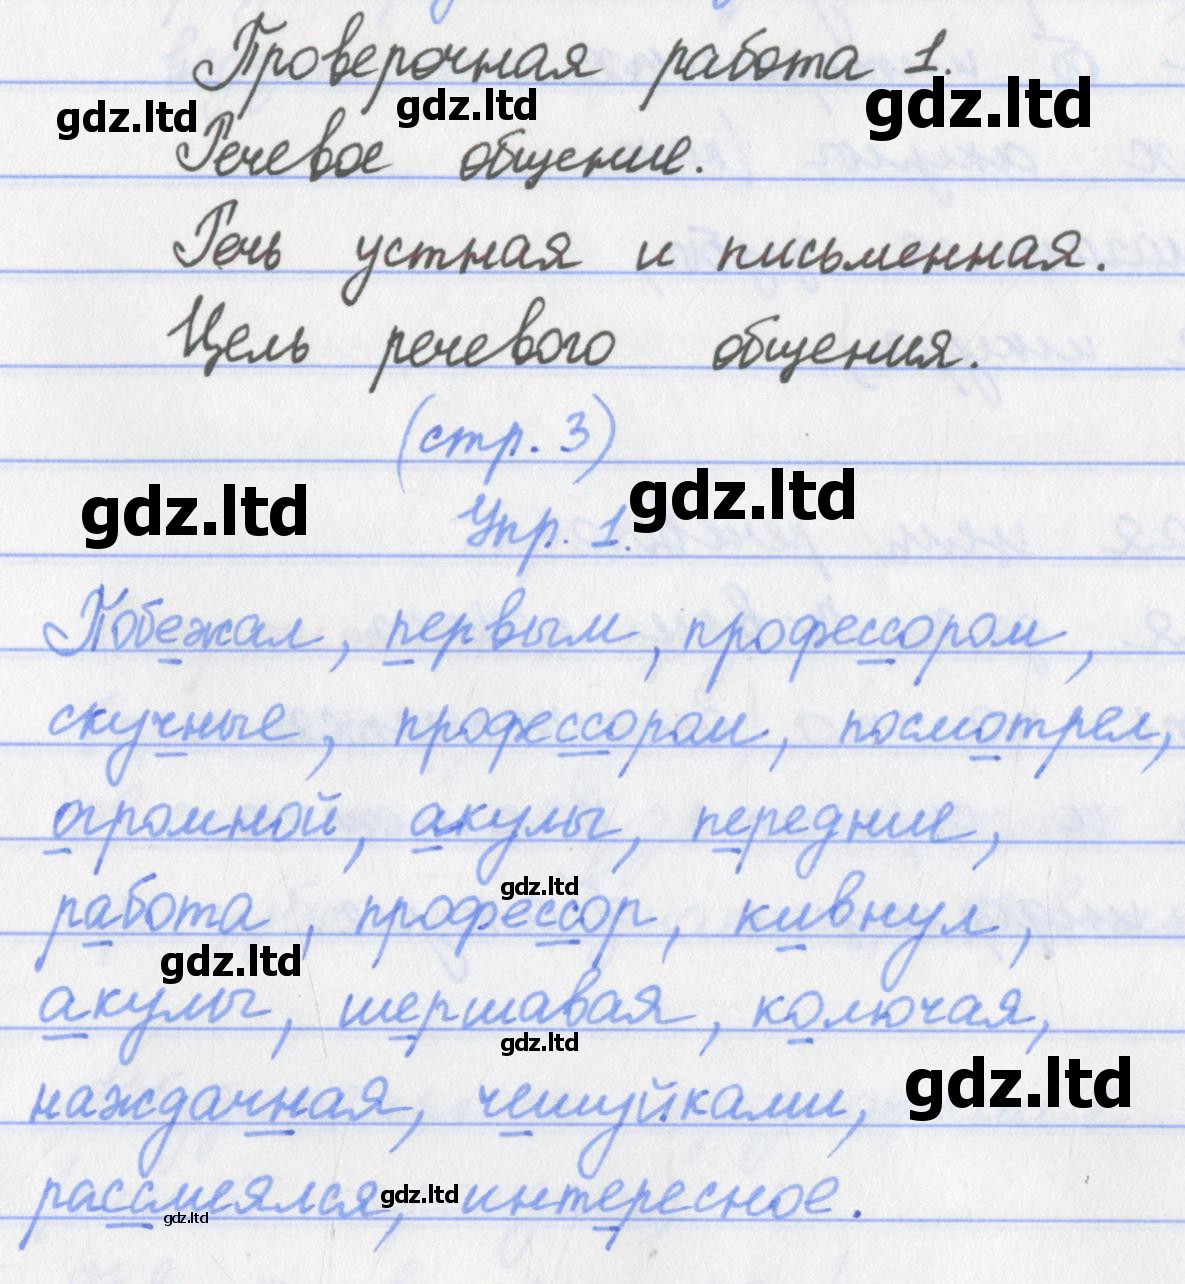 Проверочная работа 1.
gdz.ltd gdz.ltd gdz.ltd
Речевое общение.
Речь устная и письменная.
Цель речевого общения.
(стр. 3)
gdz.ltd gdz.ltd
Упр. 1.
Побежал, первым, профессором,
скучные, профессором, посмотрел,
огромной, акулы, передние,
gdz.ltd
работа, профессор, кивнул,
gdz.ltd
акулы, шершавая, колючая,
gdz.ltd gdz.ltd
наждачная, чешуйками,
рассмеялся, интересное.
gdz.ltd gdz.ltd